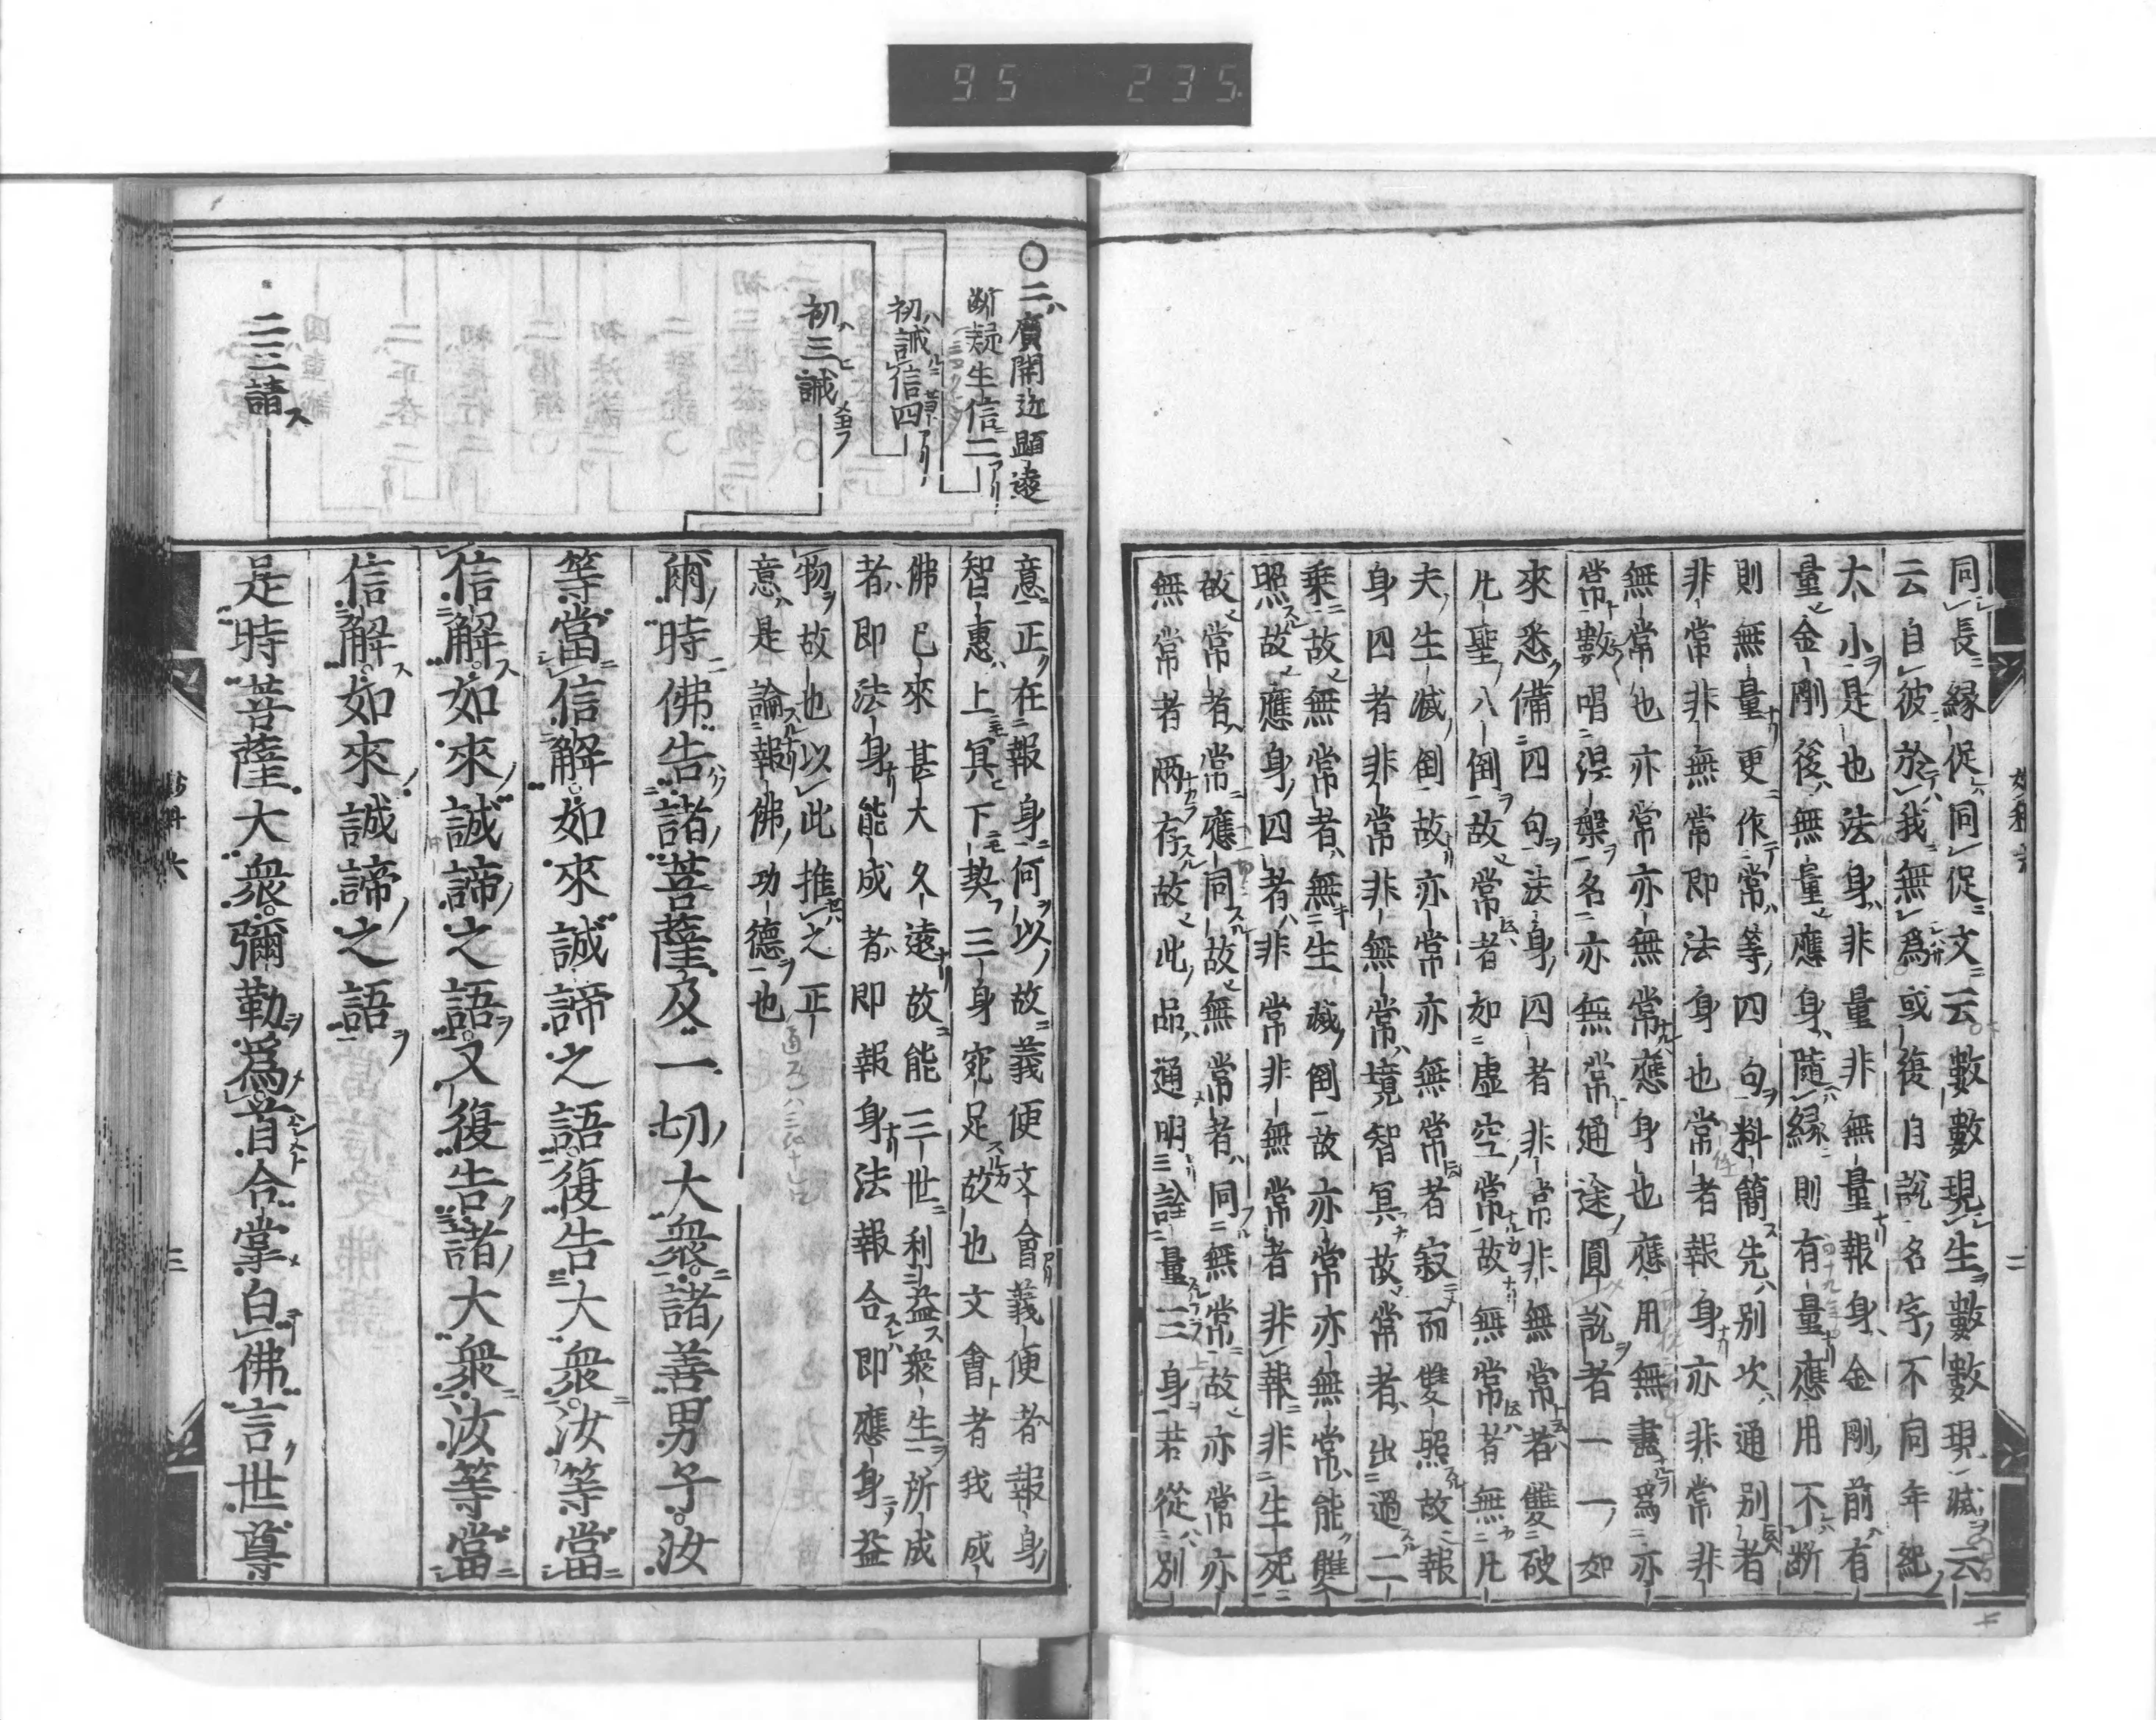 95 235
同長緣促同促文云數數現生數數現滅云
云自彼於我無爲或復自說名字不同年紀
大小是也法身非量非無量報身金剛前有
量金剛後無量應身隨緣則有量應用不斷
則無量更作常等四句料簡先別次通別者
非常非無常即法身也常者報身亦非常非
無常也亦常亦無常應身也應用無盡爲亦
常數唱涅槃名亦無常通途圓說者一一如
來悉備四句法身四者非常非無常者雙破
凡聖八倒故常者如虛空常故無常者無凡
夫生滅倒故亦常亦無常者寂而雙照故報
身四者非常非無常境智冥故常者出過二
乘故無常者無生滅倒故亦常亦無常能雙
照故應身四者非常非無常者非報非生死
故常者常應同故無常者同無常故亦常亦
無常者兩存故此品通明三詮量三身若從別
二
○二廣開近顯遠
斷疑生信二
初誡信四
初三誡
二三請
意正在報身何以故義便文會義便者報身
智惠上冥下契三身宛足故也文會者我成
佛已來甚大久遠故能三世利益衆生所成
者即法身能成者即報身法報合即應身益
物故也以此推之正
意是論報佛功德也
爾時佛告諸菩薩及一切大衆諸善男子汝
等當信解如來誠諦之語復告大衆汝等當
信解如來誠諦之語又復告諸大衆汝等當
信解如來誠諦之語
是時菩薩大衆彌勒爲首合掌白佛言世尊
三